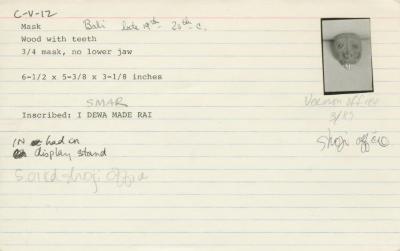 C-V-12
Mask Bali late 19th - 20th c.
Wood with teeth
3/4 mask, no lower jaw
6-1/2 x 5-3/8 x 3-1/8 inches
SMAR
Inscribed: I DEWA MADE RAI
Vernon office
3/87
shoji office
IN had on
display stand
shoji office